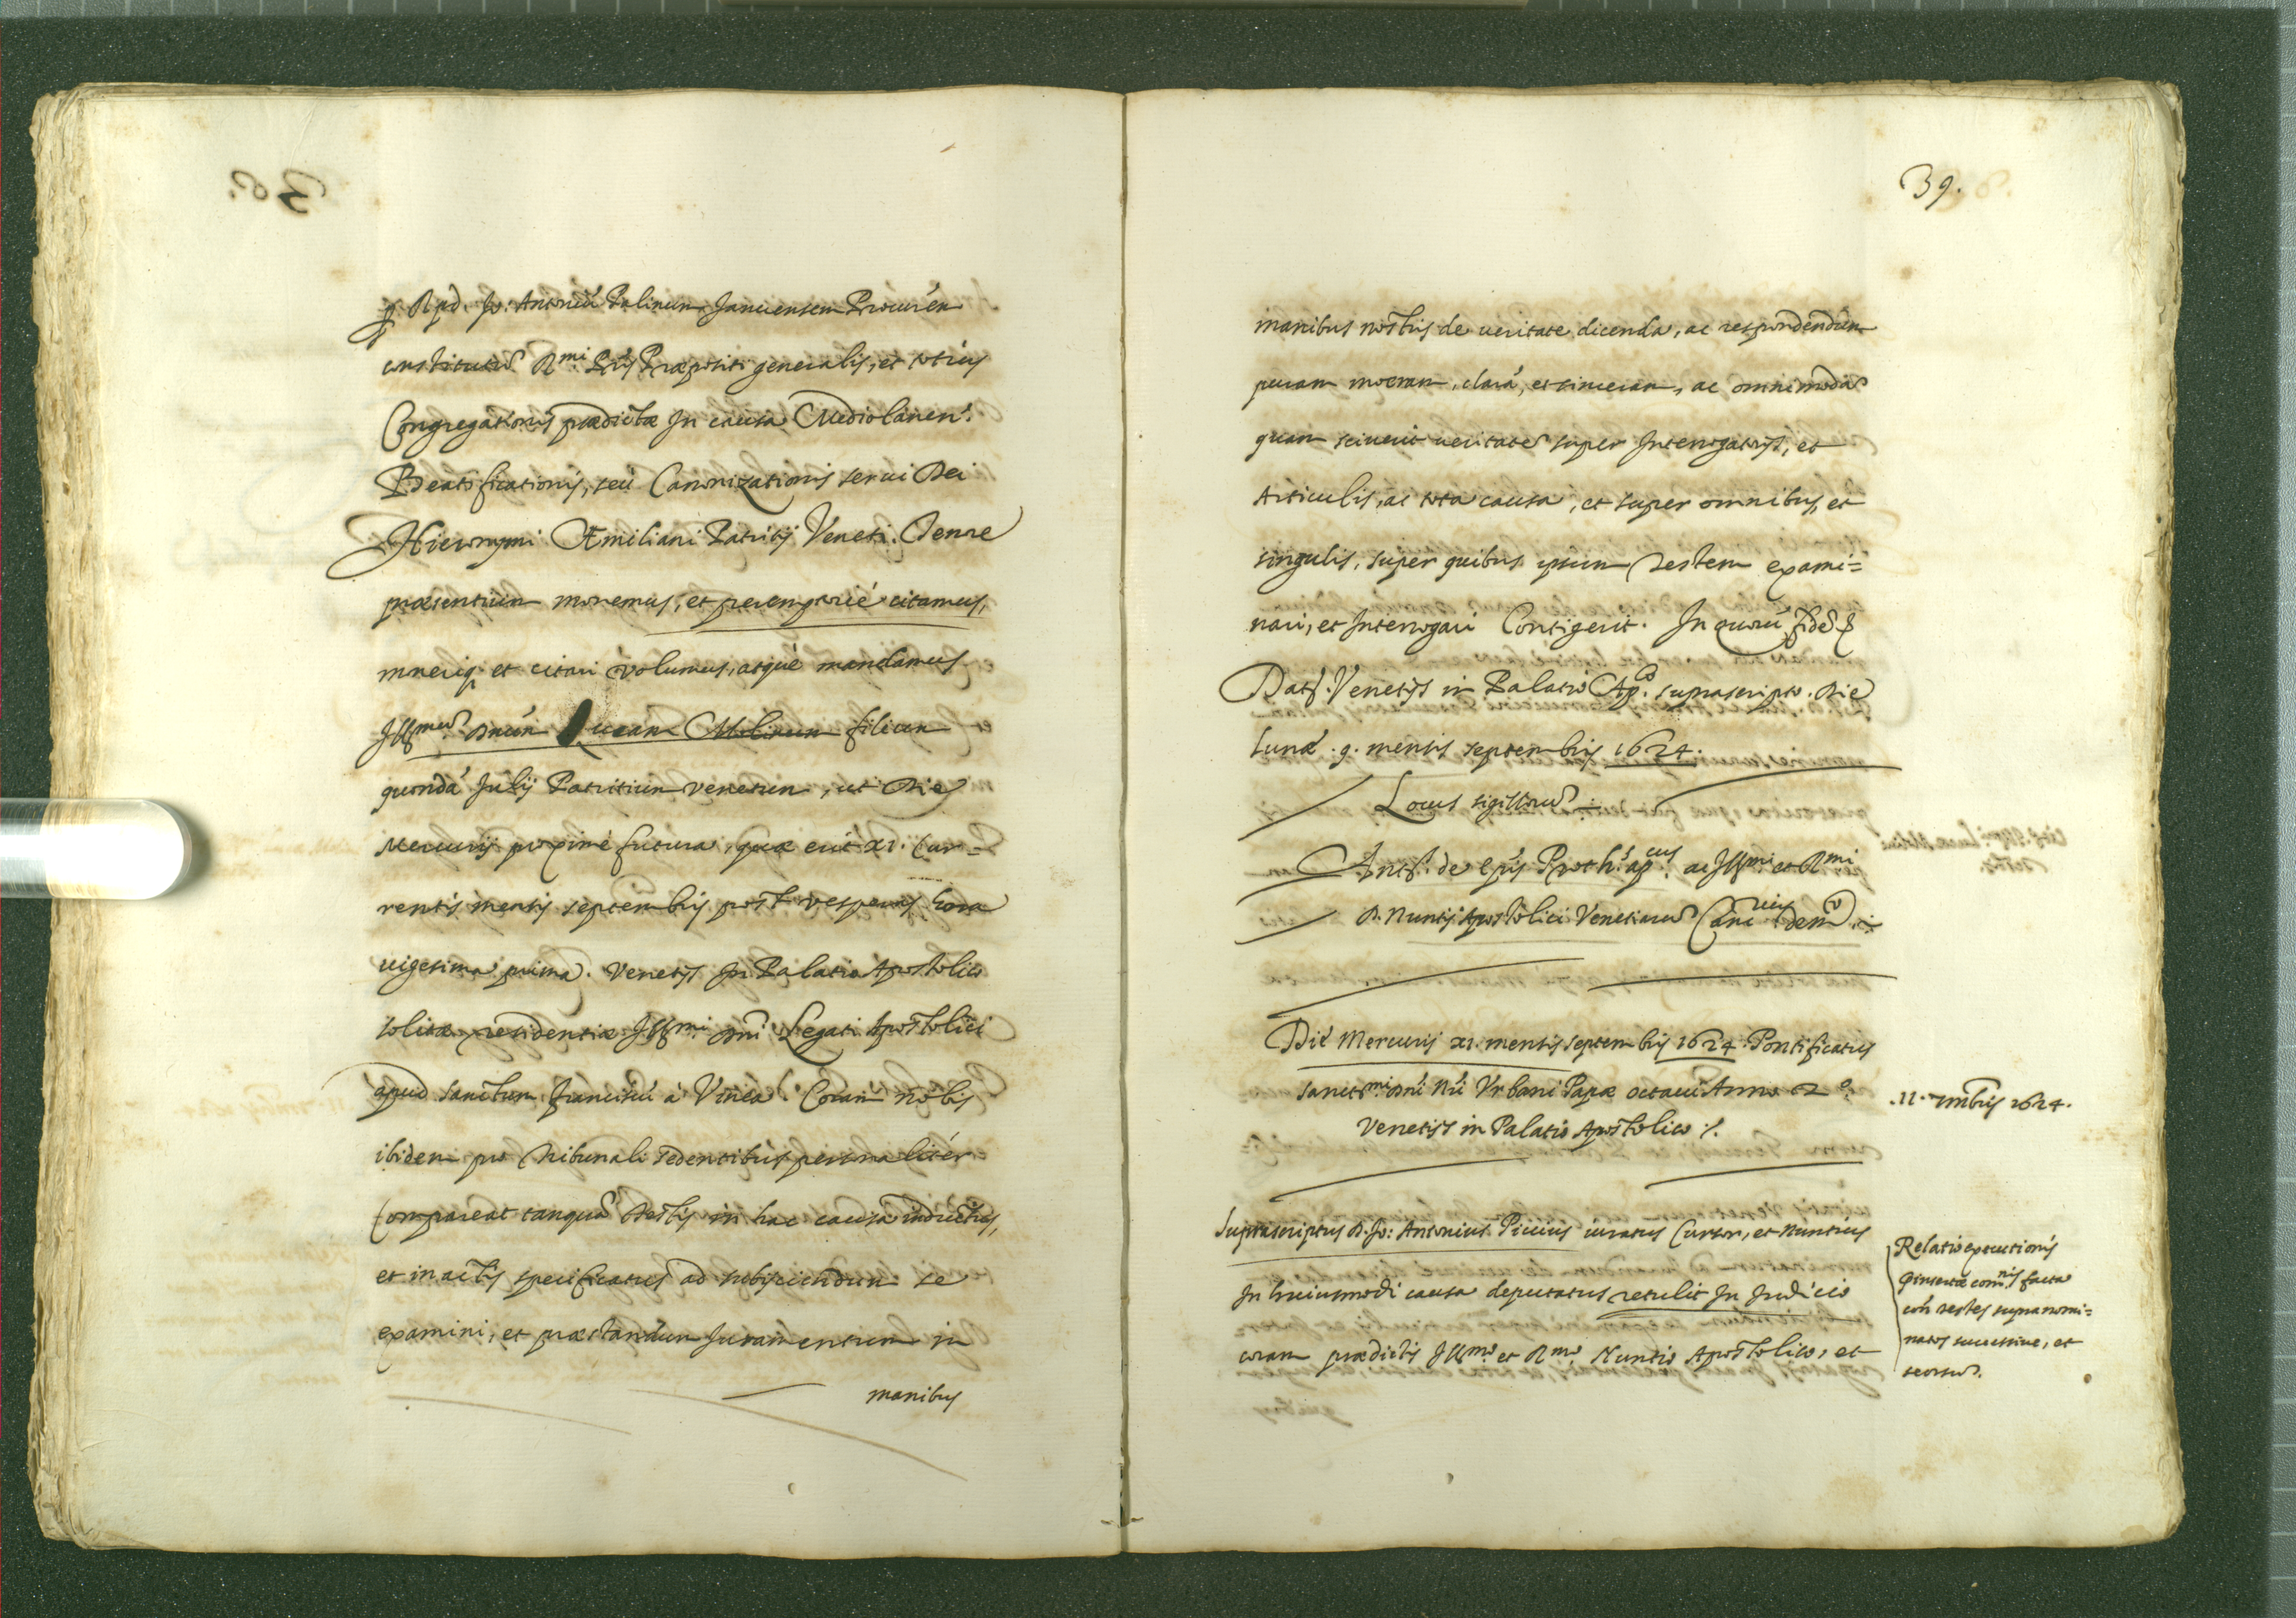 p. R.pd. Jo: Antoniú Palinum Januensem Procurén
constitutũ R.mi Pris Præpositi generalis, et totius
Congregationis prædictæ In causa Mediolanen.
Beatificationis, seù Canonizationis serui Dei
Hieronymi Æmiliani Patritij Veneti. Tenore
præsentium monemus, et peremptoriè citamus,
moneriq. et citari volumus, atquè mandamus
Illmũ Dnún Lucam Molinum filium
quondá Julij Patritium venetum, ut Die
Mercurij proximè futura, quæ erit xi. Cur=
rentis mensis septembris post vesperas hora
uigesima prima. Venetijs In Palatio Apostolico
solitæ residentiæ Illmi Dni Legati Apostolici
apud sanctum franciscú à Vinea. Coram nobis
ibidem pro tribunali sedentibus personalitér
Compareat tanquá testis in hac causa inductus,
et in actis specificatus ad subijciendum se
examini, et præstandum Juramentum in
manibus
39.
manibus nostris de ueritate dicenda, ac respondendum
puram meram, clará, et sinceram, ac omnimodã
quam sciuerit ueritatẽ super Interrogatorijs, et
Articulis, ac tota causa, et super omnibus, et
singulis, super quibus ipsum testem exami=
nari, et Interrogari Contigerit. In quorú fidẽ
Dat. Venetijs in Palatio Ap.co suprascripto. Die
Lunæ .9. mensis septembris 1624.
Locus sigillorũ
Ant. de Epis Proth.s ap.cus ac Illmi et Rmi
D. Nuntij Apostolici Venetiarũ Canc
Die Mercurij xi. mensis septembris 1624. Pontificatus
sanctmi Dni Ni Vrbani Papæ octaui Anno 2.o
Venetijs in Palatio Apostolico /.
.11. 7mbris 1624.
Suprascriptus D. Jo: Antonius Piccius iuratus Cursor, et Nuntius
In huiusmodi causa deputatus retulit In Judicio
coram prædictis Illmo et Rmo Nuntio Apostolico, et
Relatio executionis
comnis facta
con testes supranomi=
natos successiue, et
seorsũ.